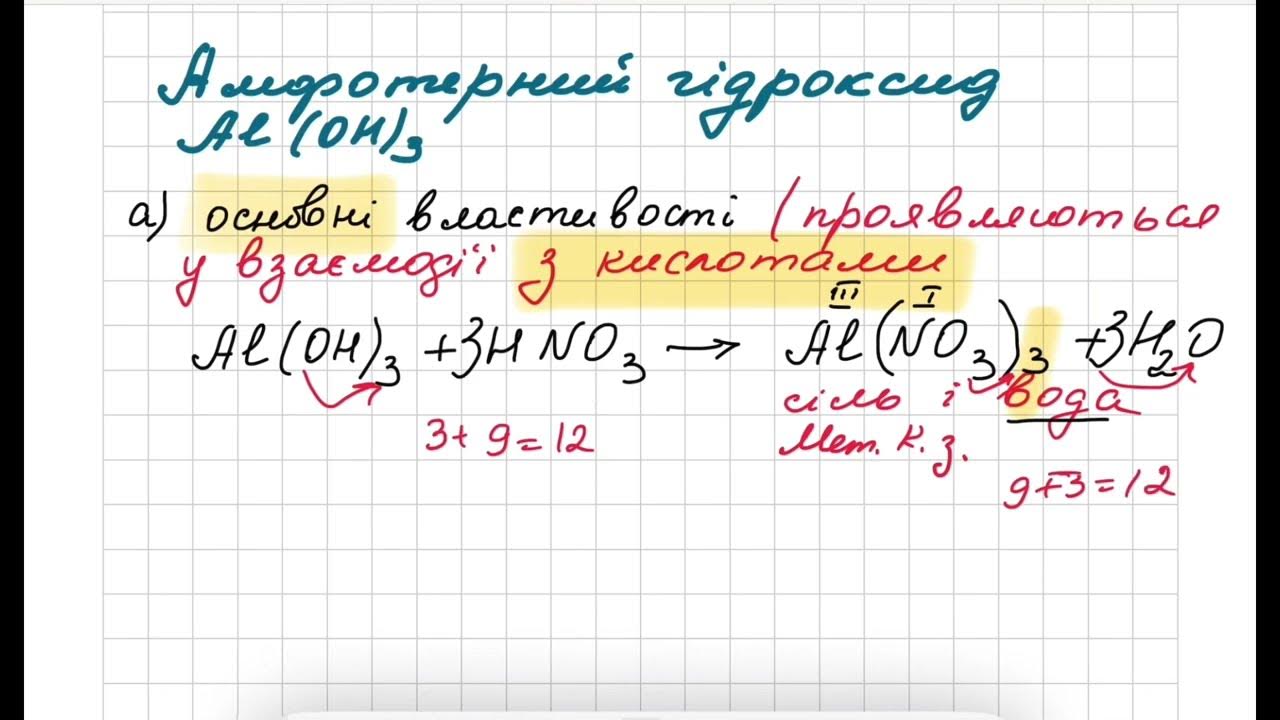 Амфотерний гідроксид
Al(OH)₃
а) основні властивості (проявляються
у взаємодії з кислотами
III I
Al(OH)₃ +3HNO₃ → Al(NO₃)₃ +3H₂O
сіль і вода
3+ 9=12 Мет. К.З.
9+3=12